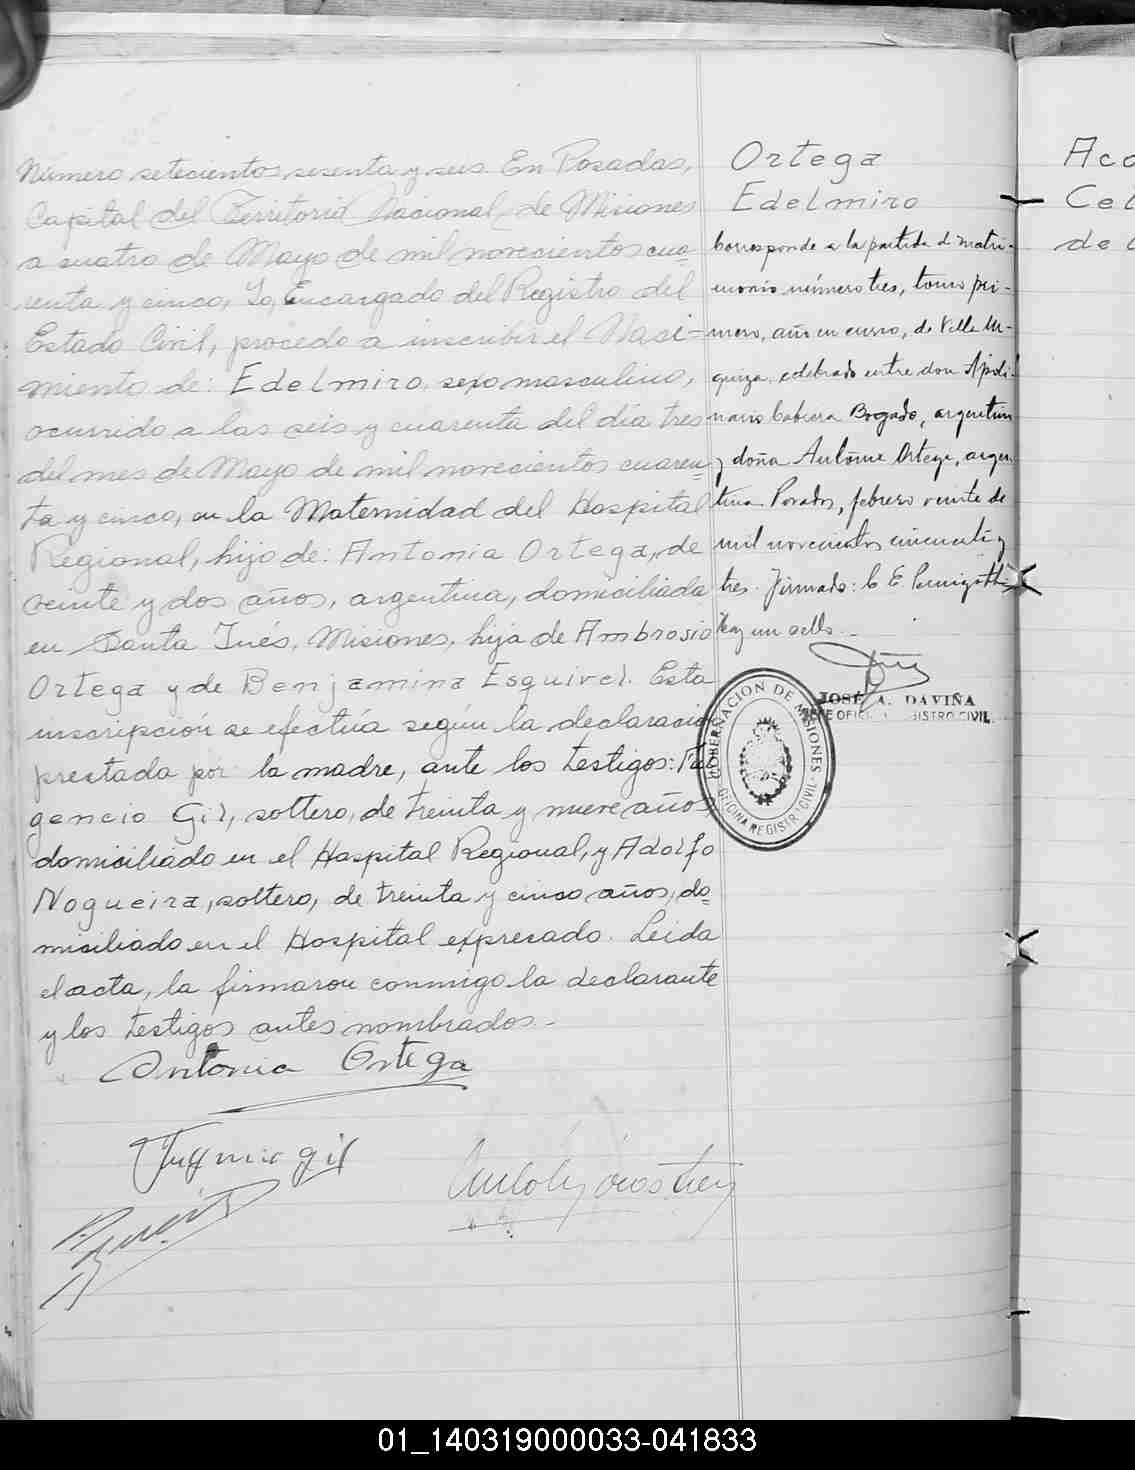 Número setecientos sesenta y seis. En Posadas,
Capital del Territorio Nacional, de Misiones
a cuatro de Mayo de mil novecientos cua-
renta y cinco, Yo, Encargado del Registro del
Estado Civil, procedo a inscribir el Naci-
miento de: Edelmiro, sexo masculino,
ocurrido a las seis y cuarenta del día tres
del mes de Mayo de mil novecientos cuaren-
ta y cinco, en la Maternidad del Hospital
Regional, hijo de: Antonia Ortega, de
veinte y dos años, argentina, domiciliada
en Santa Inés, Misiones, hija de Ambrosio
Ortega y de Benjamina Esquivel. Esta
inscripción se efectúa según la declaración
prestada por la madre, ante los testigos:
gencio Gil, soltero, de treinta y nueve años,
domiciliado en el Hospital Regional, y Adolfo
Nogueira, soltero, de treinta y cinco años, do-
miciliado en el Hospital expresado. Leida
el acta, la firmaron conmigo la declarante
y los testigos antes nombrados.-
Antonia Ortega
gil
Ortega
Edelmiro
Corresponde a la partida d matri-
monio número tres, tomo pri-
mero, año en curso, de Villa Ur-
quiza, celebrado entre don Apoli-
nario Cabrera Bogado, argentino
y doña Antonia Ortega, argen-
tina Posadas, febrero veinte de
mil novecientos cincuenta y
tres. Firmado: C. E.
Hay un sello.-
JOSÉ A. DAVIÑA
JEFE OFICINA REGISTRO CIVIL
GOBERNACION DE MISIONES
OFICINA REGISTRO CIVIL
Aco
Cel
de
01_140319000033-041833